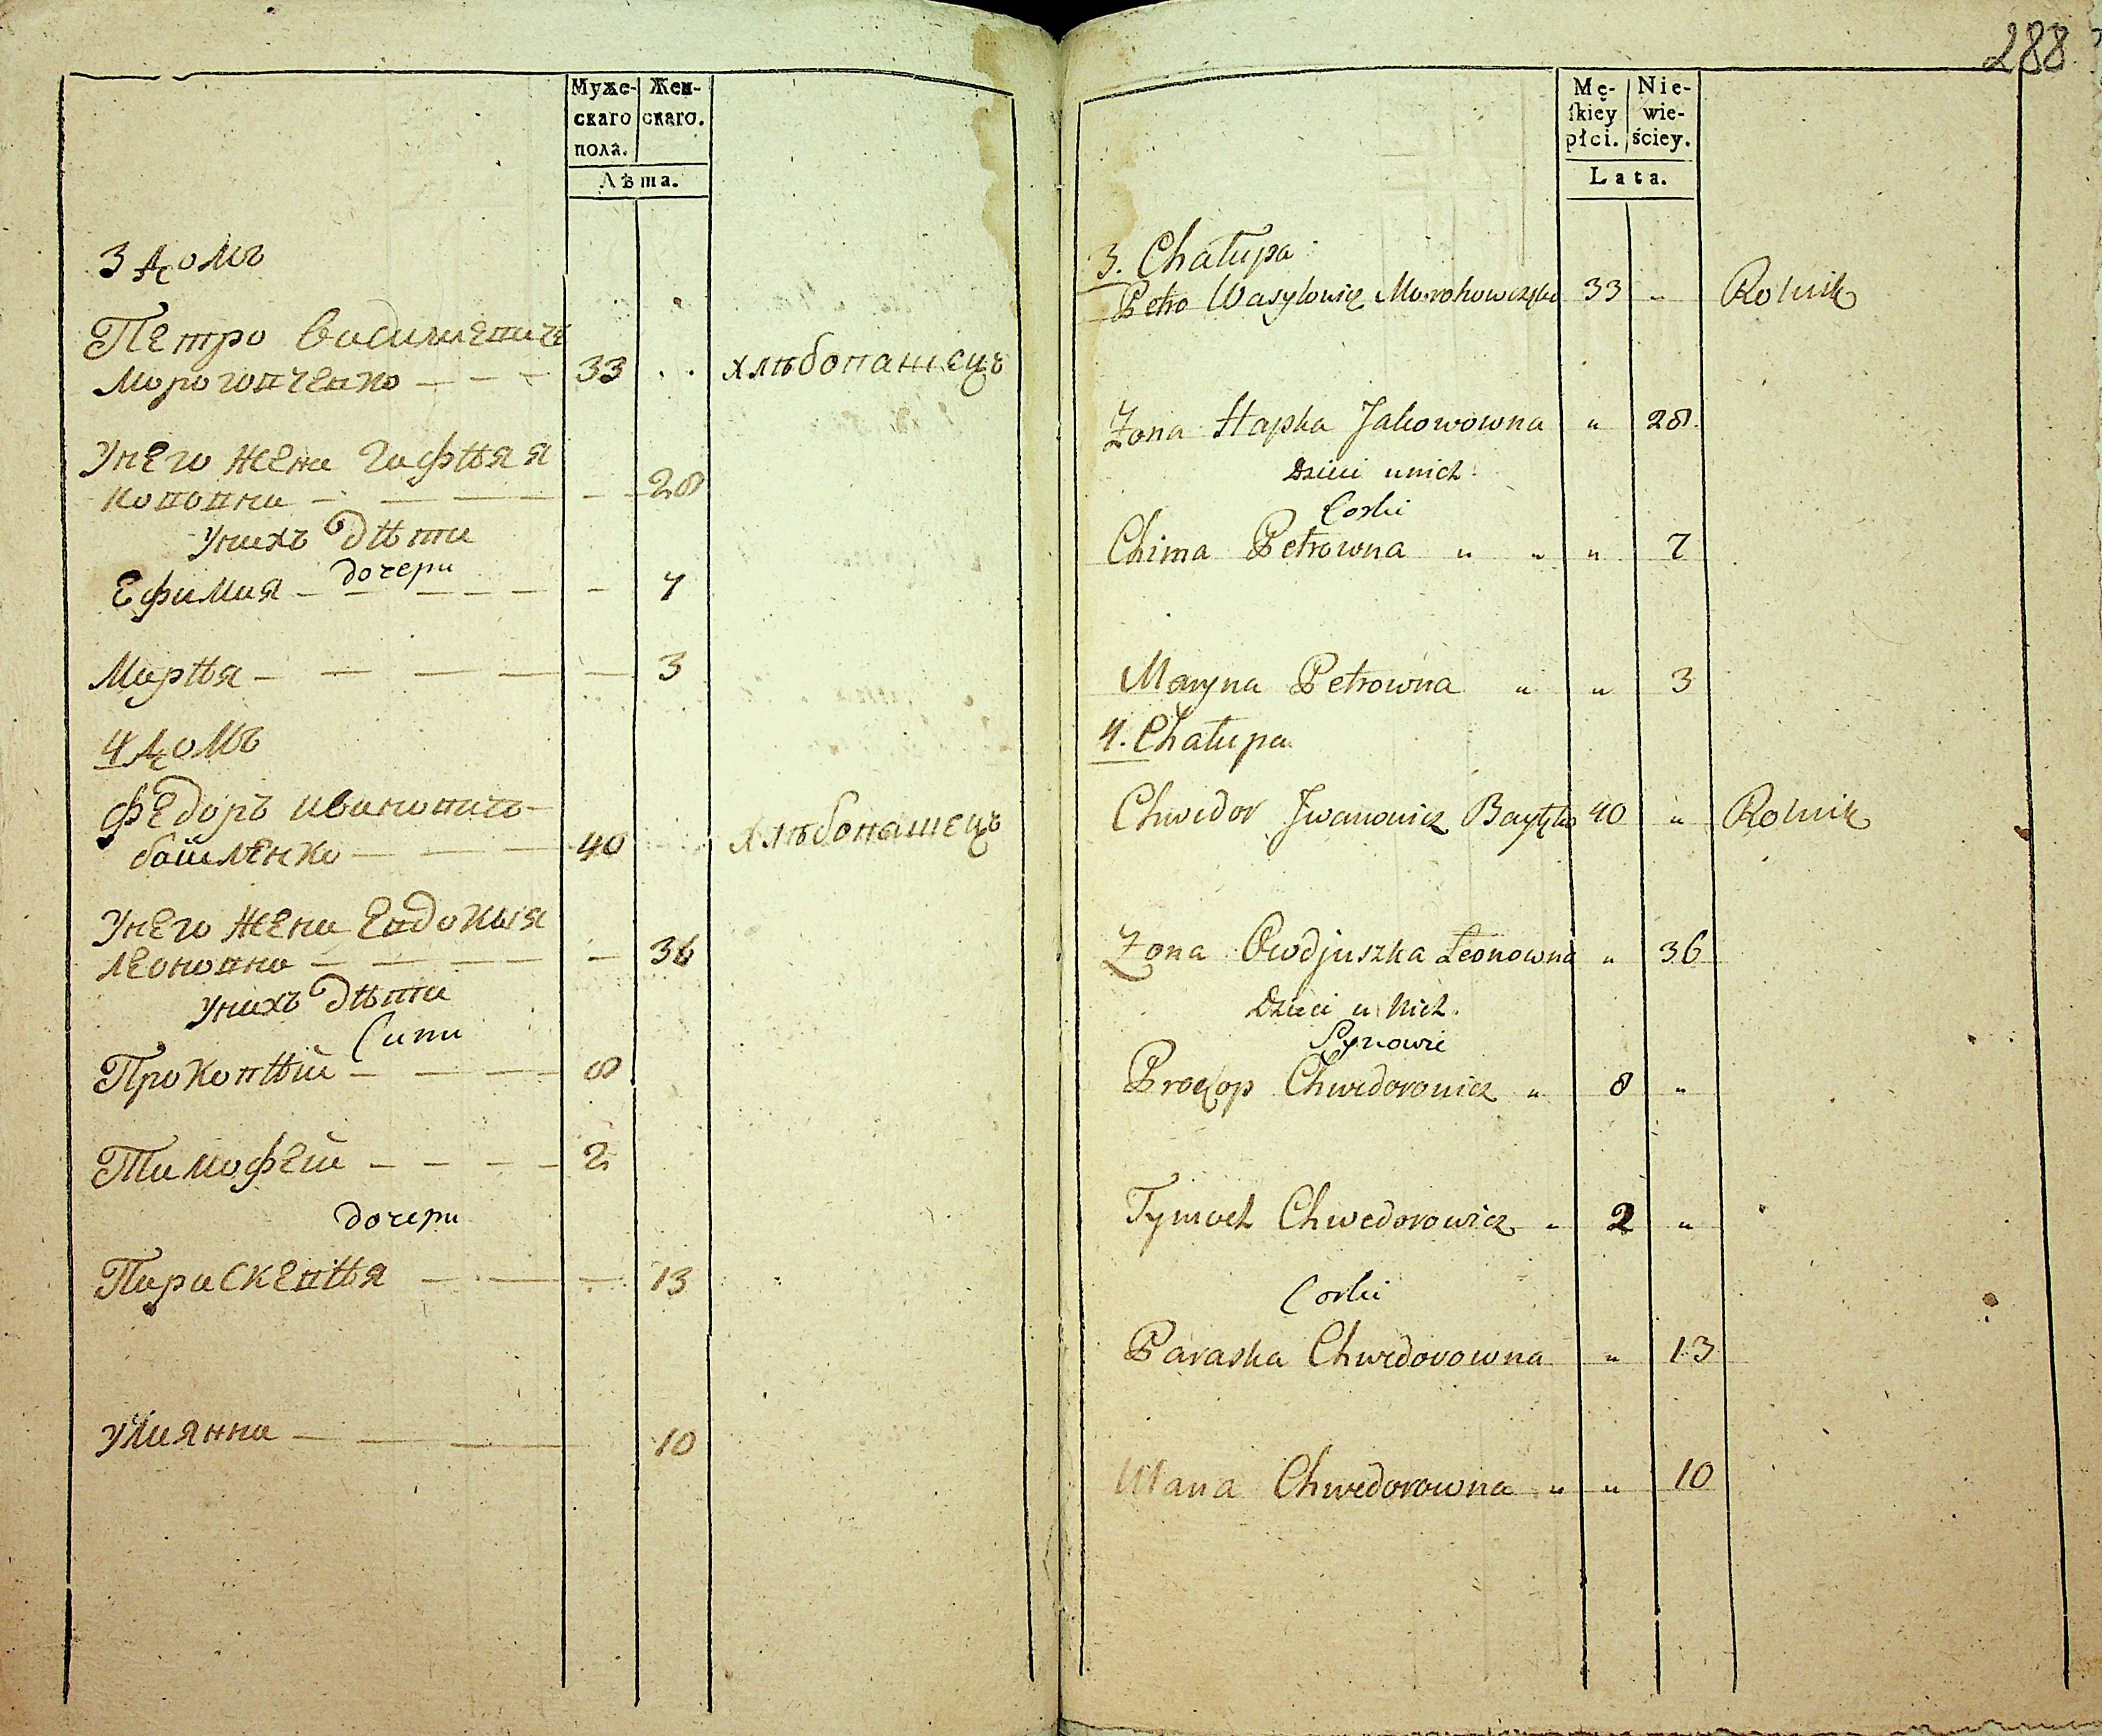 Муже-
скаго
пола.
Жен-
скаго.
Лѣта.
3 домъ
Петро Василиевичъ
Мороговченко — — — 33 . . хлѣбопашецъ
Унего жена Гафѣя Я
кововна — — — — 28
Унихъ дѣти
дочери
Ефимия — — — — — 7
Марѣя — — — — — 3
4 домъ
Федоръ Ивановичъ
байленко — — — 40 хлѣбопашецъ
Унего жена Евдокия
леоновна — — — — — 36
Унихъ дѣти
Сини
Прокопѣй — — — — 8
Тимофей — — — — 2
дочери
Параскевѣя — — — 13
Улиянна — — — — 10
288
Mę-
skiey
płci.
Nie-
wie-
ściey.
Lata.
3. Chałupa
Petro Wasylowicz 33 „ Rolnik
Żona Hapka Jakowowna „ 28.
Dzieci unich
Corki
Chima Petrowna „ „ „ 7
Maryna Petrowna „ „ 3
4. Chałupa
Chwedor Jwanowicz 40 „ Rolnik
Żona Owdjuszka Leonowna „ 36
Dzieci u Nich.
Synowie
Prokop Chwedorowicz „ 8 „
Tymoch Chwedorowicz „ 2 „
Corki
Paraska Chwedorowna „ 13
Ulana Chwedorowna „ „ 10